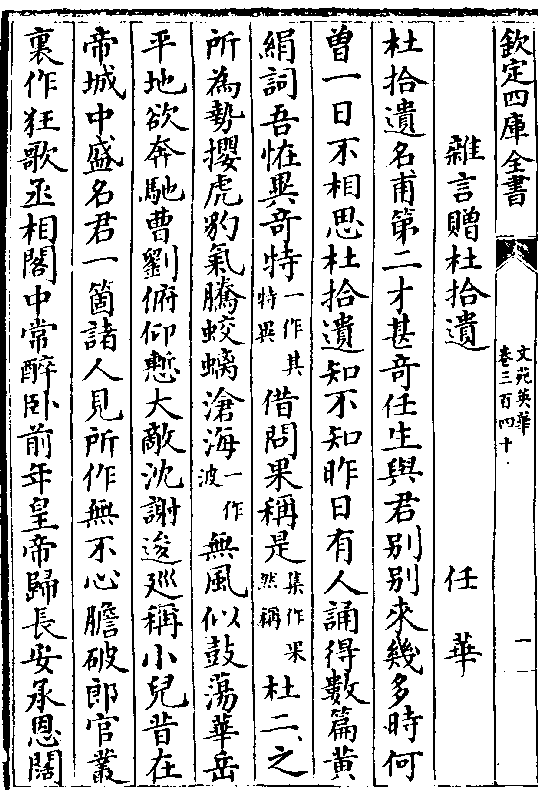 欽定四庫全書
文苑英華
卷三百四十
一
雜言贈杜拾遺　任華
杜拾遺名甫第二才甚奇任生與君别别來幾多時何
曽一日不相思杜拾遺知不知昨日有人誦得數篇黄
絹詞吾怪異奇特一作其特異借問果稱是集作果然稱杜二之
所為勢攖虎豹氣騰蛟螭滄海一作波無風似鼓蕩華岳
平地欲奔馳曹劉俯仰慙大敵沈謝逡廵稱小兒昔在
帝城中盛名君一箇諸人見所作無不心膽破郎官叢
裏作狂歌丞相閣中常醉卧前年皇帝歸長安承恩闊